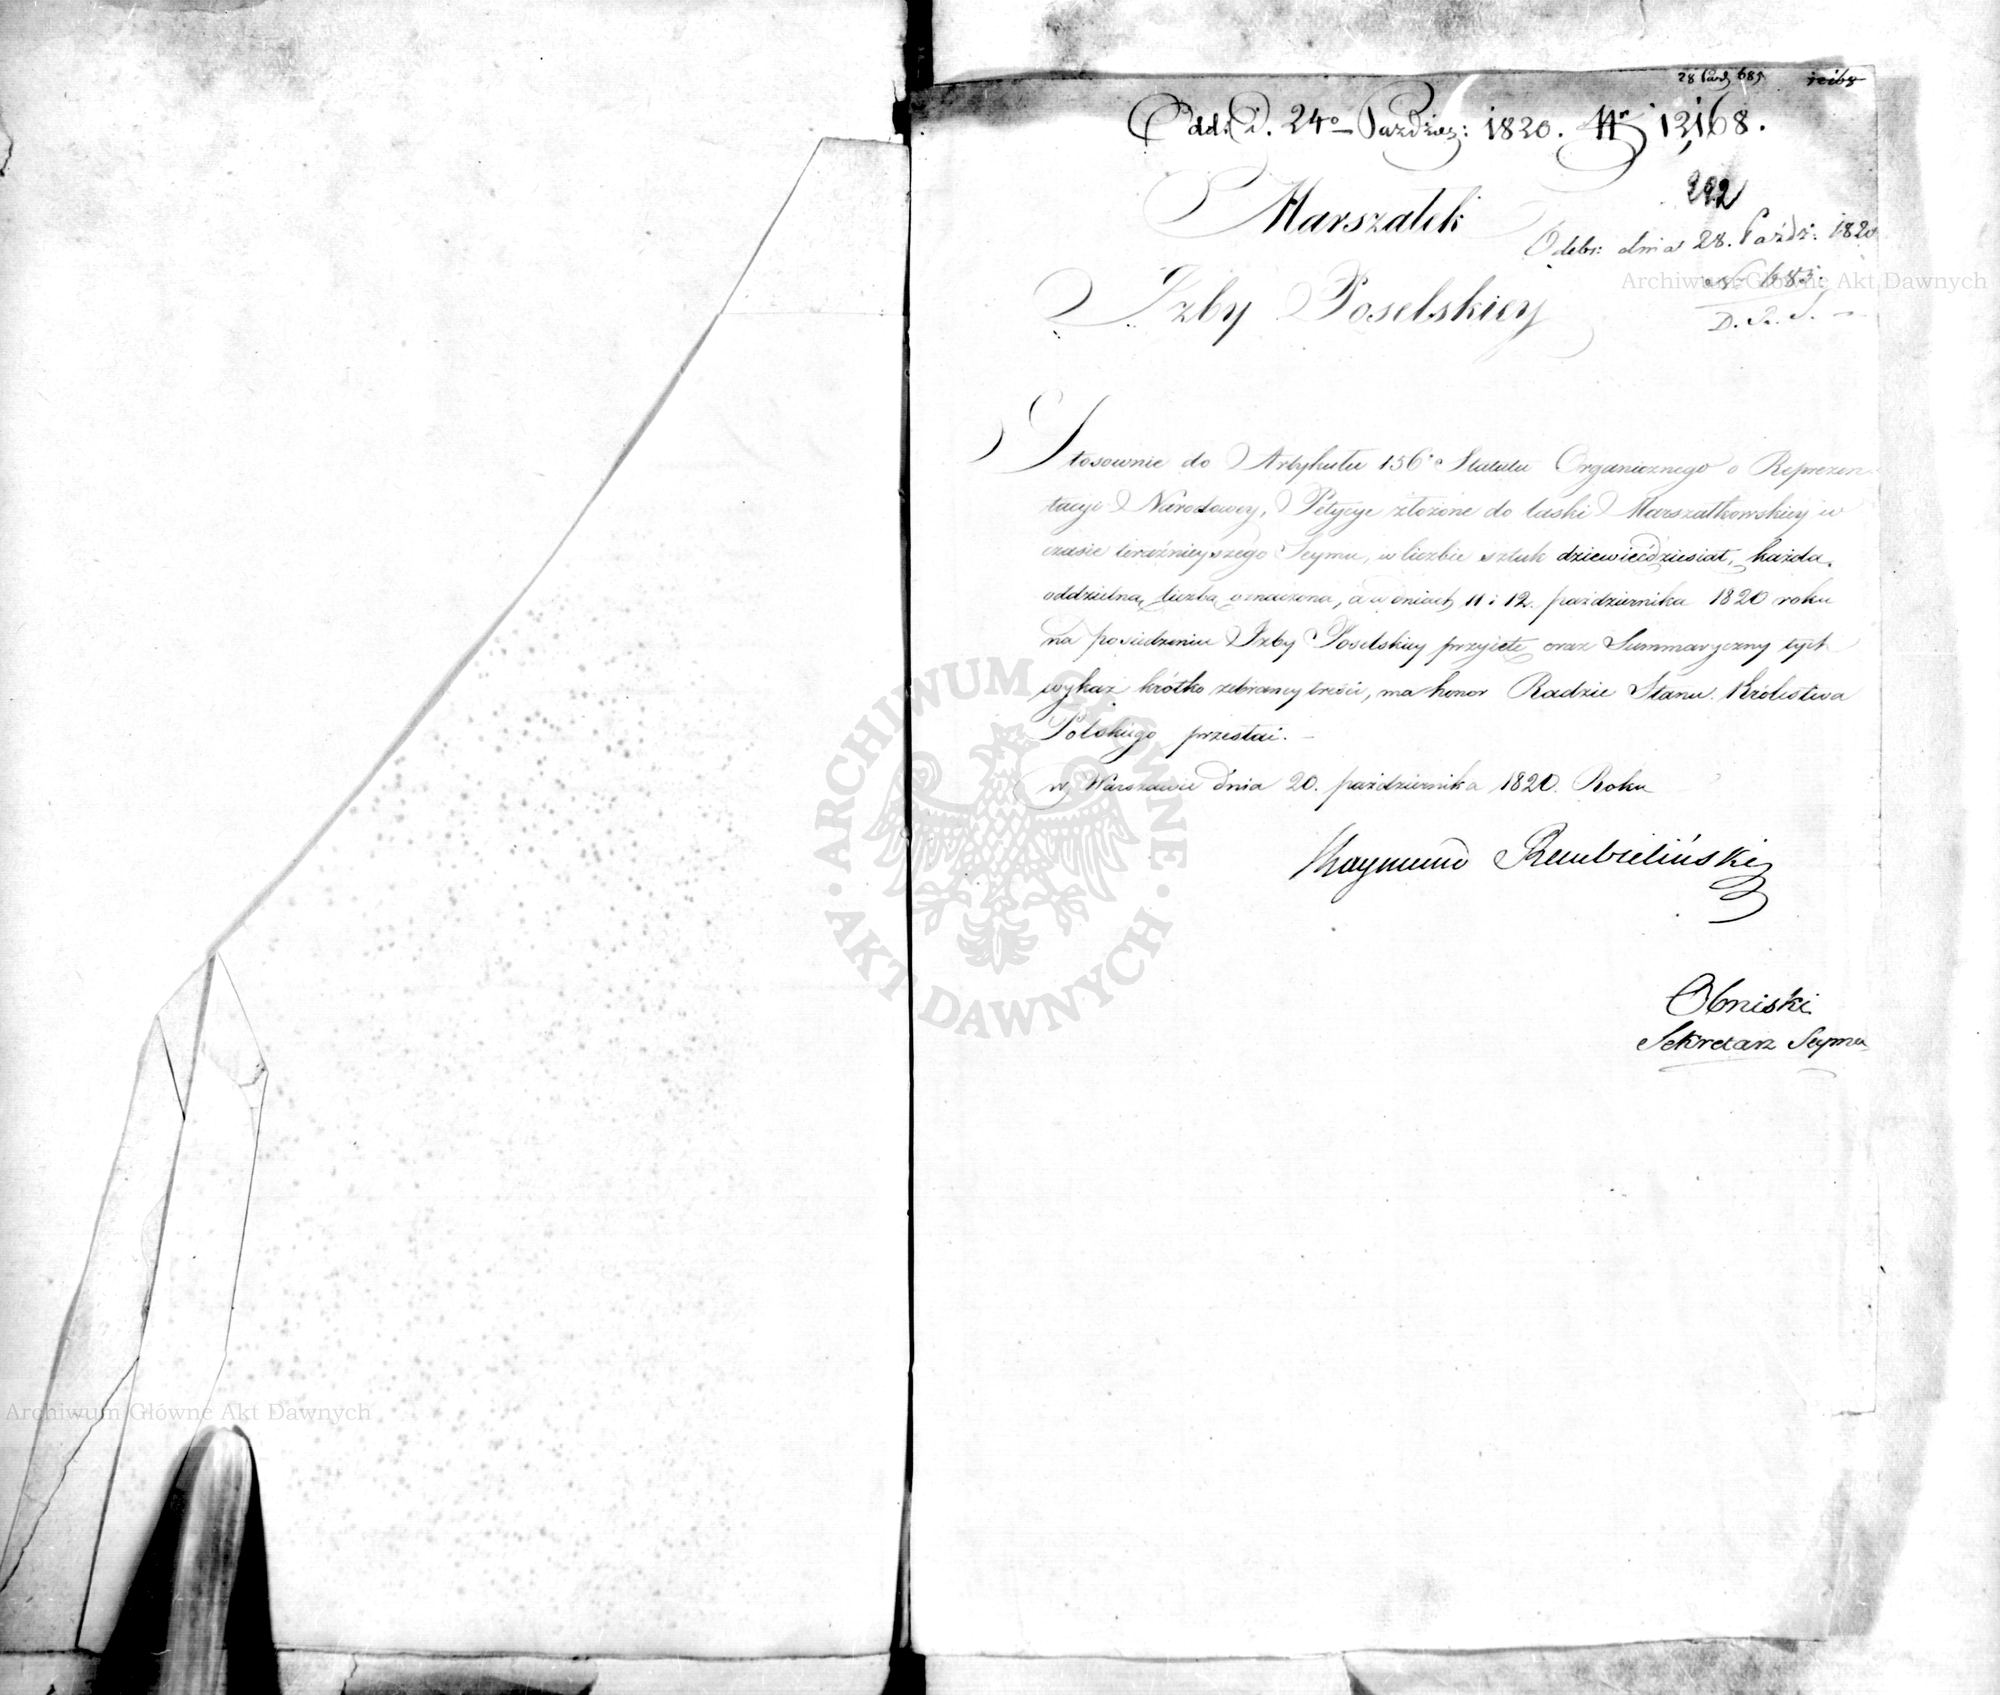 28 Paźd 685 12168
Odd: d. 24o Paździer: 1820. Nr 12,168.
292
Marszałek
Odebr: dnia 28. Paźdź: 1820
Nr 685.
Izby Poselskiey
D. R. S.
Stosownie do Artykułu 156o Statutu Organicznego o Reprezen-
tacyi Narodowey, Petycye złożone do łaski Marszałkowskiey w
czasie teraźnieyszego Seymu, w liczbie sztuk dziewięćdziesiąt, każda
oddzielną liczbą oznaczona, a w dniach 11 i 12. października 1820 roku
na posiedzeniu Izby Poselskiey przyięte oraz Summaryczny tych
wykaz krótko zebraney treści, ma honor Radzie Stanu Królestwa
Polskiego przesłać. –
w Warszawie dnia 20. października 1820. Roku
Raymund Rembieliński
Obniski
Sekretarz Seymu
Archiwum Główne Akt Dawnych
ARCHIWUM GŁÓWNE AKT DAWNYCH
Archiwum Główne Akt Dawnych